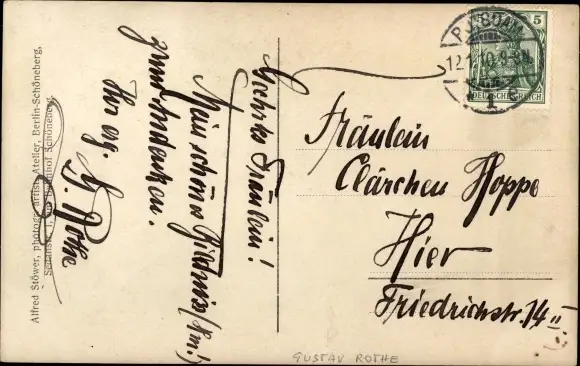 Alfred Stöwer, photogr. artist. Atelier, Berlin-Schöneberg,
Bahnhof Schöneberg.
Geehrtes Fräulein!
Mein schönes Bildniss (Hm!)
zum Andenken.
Ihr erg. G. Rothe
POTSDAM
12.1.10. 8-9
1
5
DEUTSCHES REICH
Fräulein
Clärchen Hoppe
Hier
Friedrichstr. 14 II
GUSTAV ROTHE